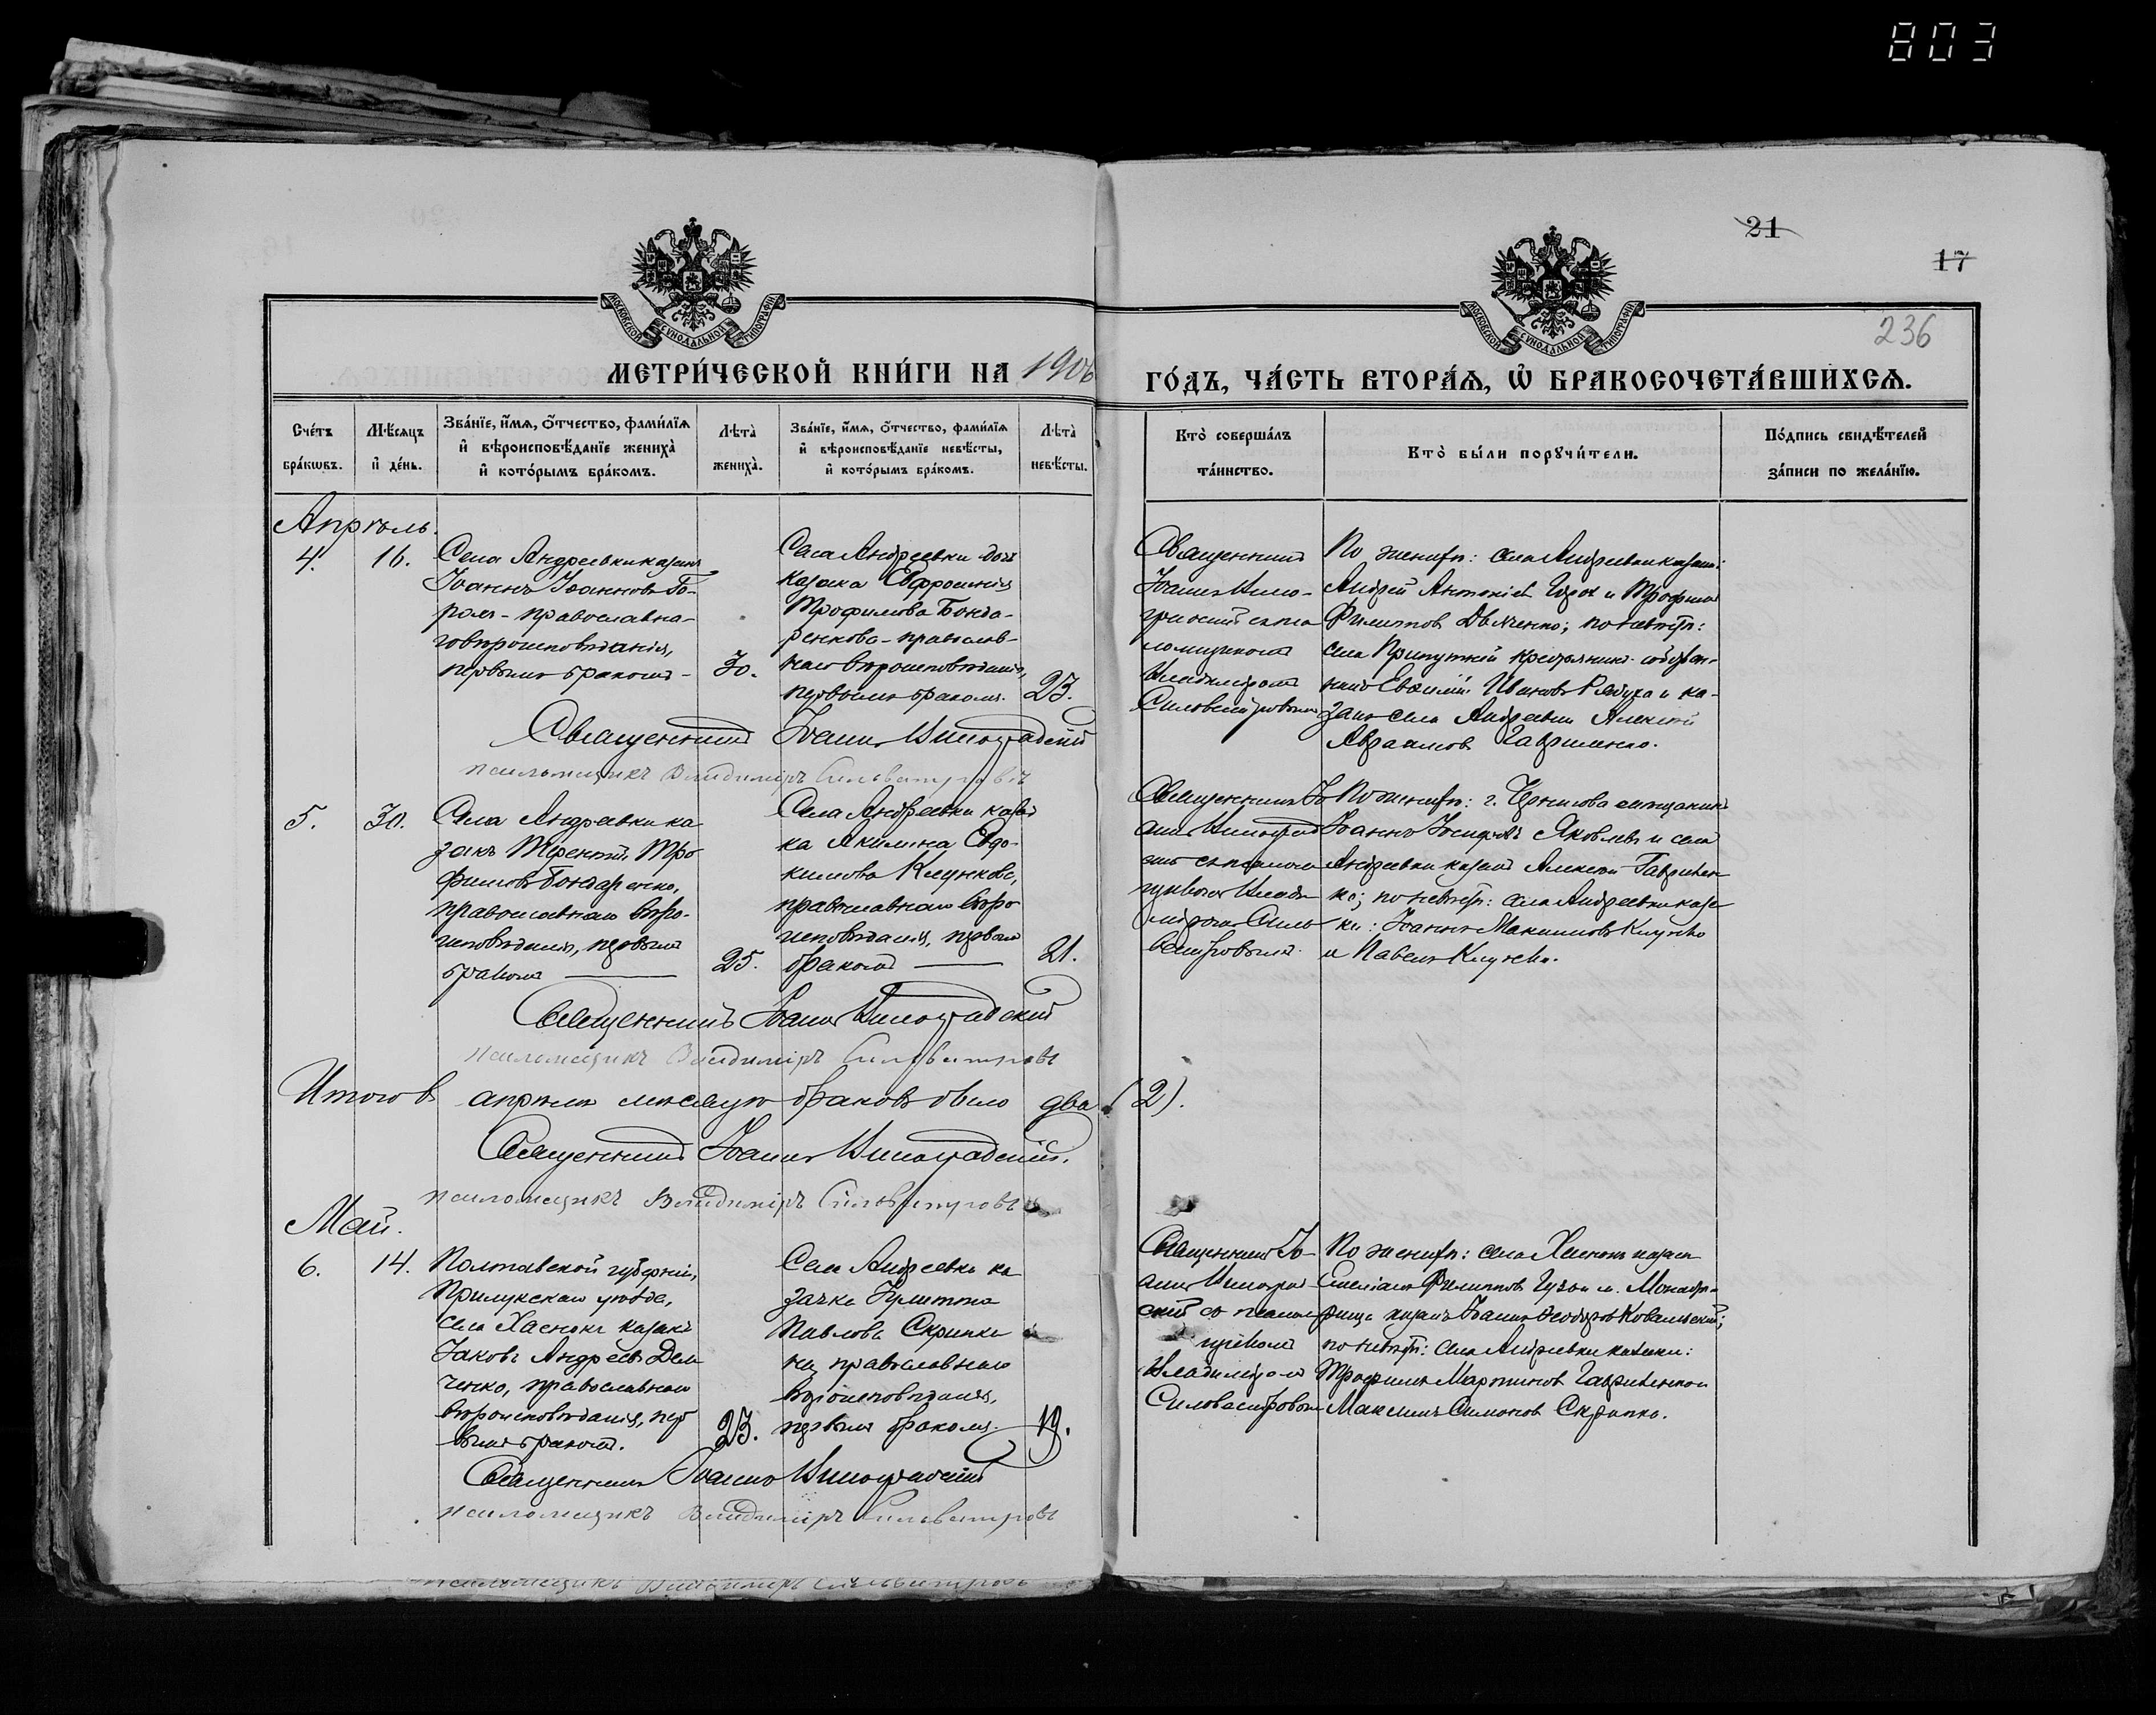 803
21
17
236
МОСКОВСКОЙ СУНОДАЛЬНОЙ ТИПОГРАФІИ
МОСКОВСКОЙ СУНОДАЛЬНОЙ ТИПОГРАФІИ
МЕТРИ́ЧЕСКОЙ КНИ́ГИ НА 1906
ГО́ДЪ, ЧА́СТЬ ВТОРА́Ѧ, Ѡ҆ БРАКОСОЧЕТА́ВШИХСѦ.
Сче́тъ бра́кѡвъ.
Мѣ́сѧцъ и҆ де́нь.
Зва́нїе, и҆́мѧ, ѻ҆́тчество, фами́лїѧ и҆ вѣроисповѣ́данїе жениха̀ и҆ кото́рымъ бра́комъ.
Лѣта̀ жениха̀.
Зва́нїе, и҆́мѧ, ѻ҆́тчество, фами́лїѧ и҆ вѣроисповѣ́данїе невѣ́сты, и҆ кото́рымъ бра́комъ.
Лѣта̀ невѣ́сты.
Кто̀ соверша́лъ та́инство.
Кто̀ бы́ли порꙋчи́тели.
По́дпись свидѣ́телей за́писи по жела́нїю.
Апрѣль.
4.
16.
Села Андреевки казакъ
Іоаннъ Іоанновъ
православна-
го вѣроисповѣданія,
первымъ бракомъ -
30.
Села Андреевки дочь
казака Евфросинія
Трофимова Бонда-
ренкова - православ-
наго вѣроисповѣданія,
первымъ бракомъ.
23.
Священникъ
Іоаннъ Вино-
градскій съ пса-
ломщикомъ
Владиміромъ
Сильвестровымъ
По женихѣ: села Андреевки казаки:
Андрей Антоніевъ и Трофимъ
Филиповъ по невѣстѣ:
села крестьянинъ-собствен-
никъ Евфимій Ивановъ и ка-
закъ села Андреевки Алексей
Авраамовъ Гавриленко.
Священникъ Іоаннъ Виноградскій
псаломщикъ Владиміръ Сильвестровъ
5.
30.
Села Андреевки ка
закъ Терентій Тро
фимовъ Бондаренко,
православнаго вѣро-
исповѣданія, первымъ
бракомъ
25.
Села Андреевки казач
ка Акилина Евдо-
кимова Клункова,
православнаго вѣро
исповѣданія, первымъ
бракомъ
21.
Священникъ Іо
аннъ Виноград
скій съ псалом
щикомъ Влади
міромъ Силь
вестровымъ.
По женихѣ: г. Чернигова мѣщанинъ
Іоаннъ Яковлевъ и села
Андреевки казакъ Алексей Гаврилен
ко; по невѣстѣ: села Андреевки каза
ки: Іоаннъ Максимовъ Клунко
и Павелъ Клунко.
Священникъ Іоаннъ Виноградскій
псаломщикъ Владиміръ Сильвестровъ
Итого въ апрѣлѣ мѣсяцѣ браковъ было два (2).
Священникъ Іоаннъ Виноградскій.
псаломщикъ Владиміръ Сильвестровъ
Май.
6.
14.
Полтавской губерніи,
Прилукскаго уѣзда,
села казакъ
Іаковъ Андреевъ Дем
ченко, православнаго
вѣроисповѣданія, пер
вымъ бракомъ.
23.
Села Андреевки ка
зачка
Павлова Скрипки
на православнаго
вѣроисповѣданія,
первымъ бракомъ.
19.
Священникъ Іо-
аннъ Виноград
скій съ псалом
щикомъ
Владиміромъ
Сильвестровымъ
По женихѣ: села казакъ
Филиповъ м. Монасты-
рища казакъ Іоаннъ Ѳеодоровъ Ковальскій;
по невѣстѣ: села Андреевки казаки:
Трофимъ Мартиновъ Гавриленко и
Максимъ Симоновъ Скрипка.
Священникъ Іоаннъ Виноградскій
псаломщикъ Владиміръ Сильвестровъ
псаломщикъ Владиміръ Сильвестровъ